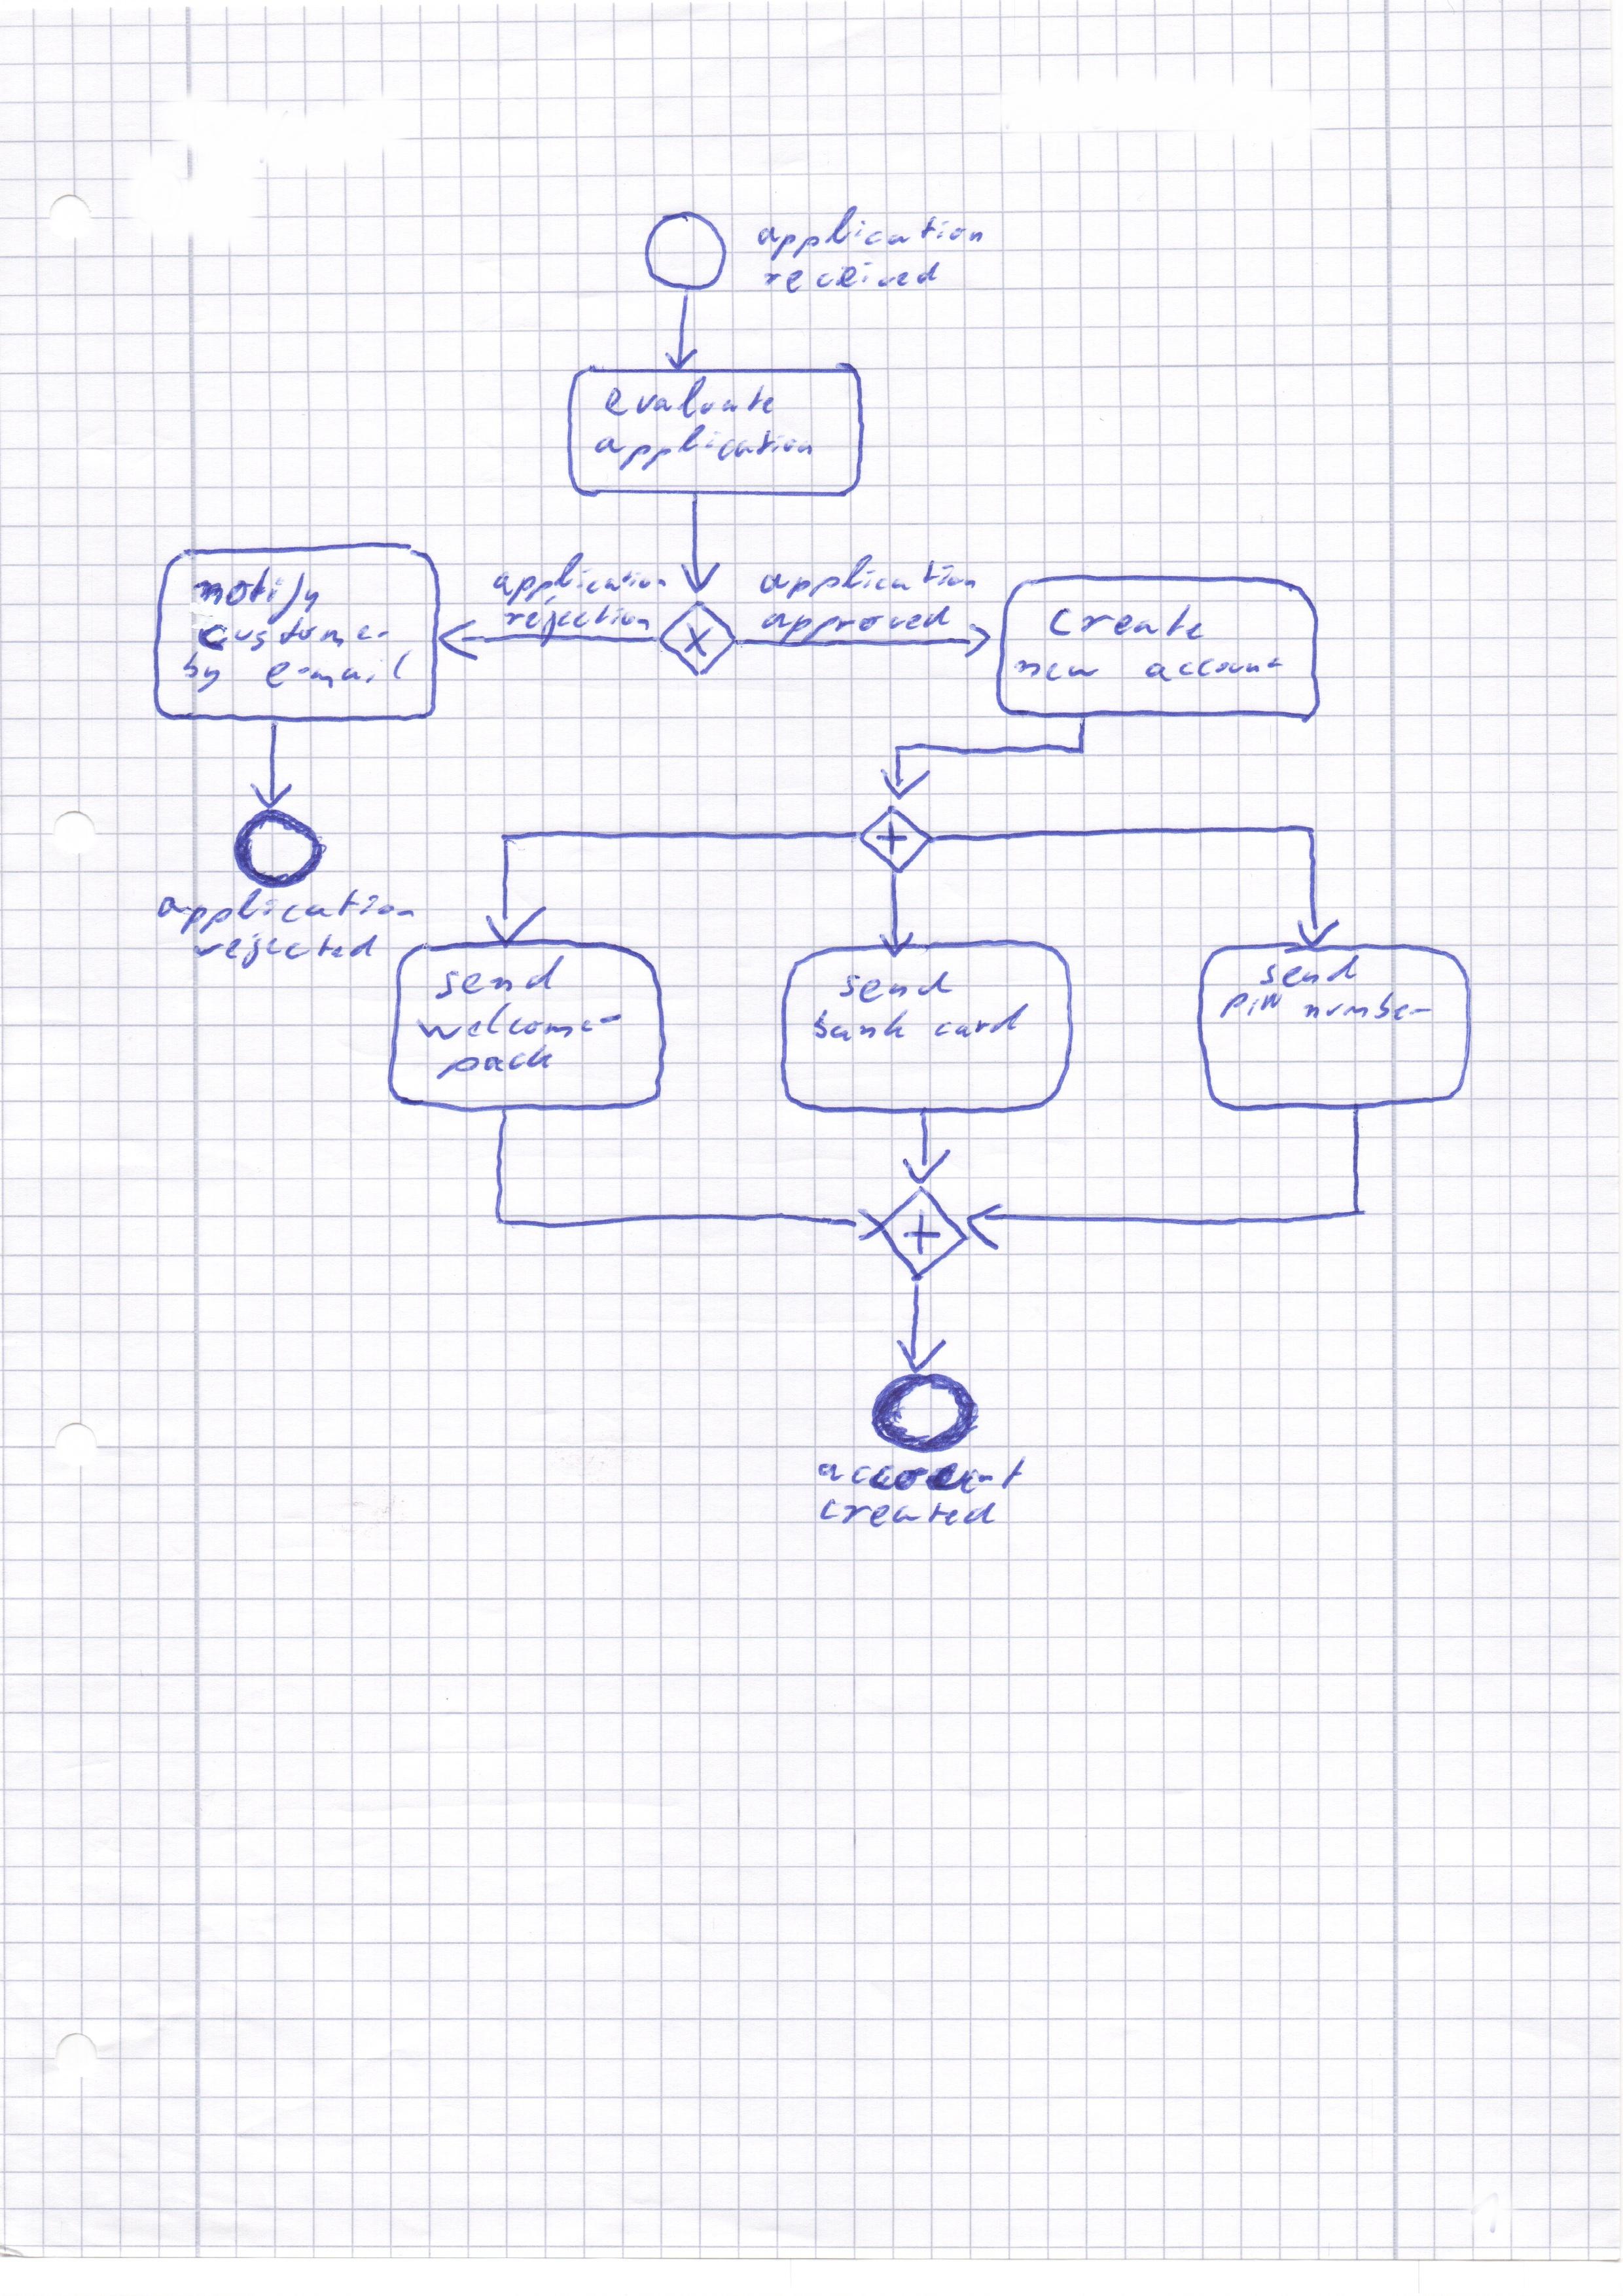 application
received
evaluate
application
application
rejection
application
approved
notify
customer
by e-mail
create
new account
application
rejected
send
welcome
pack
send
bank card
send
PIN number
account
created